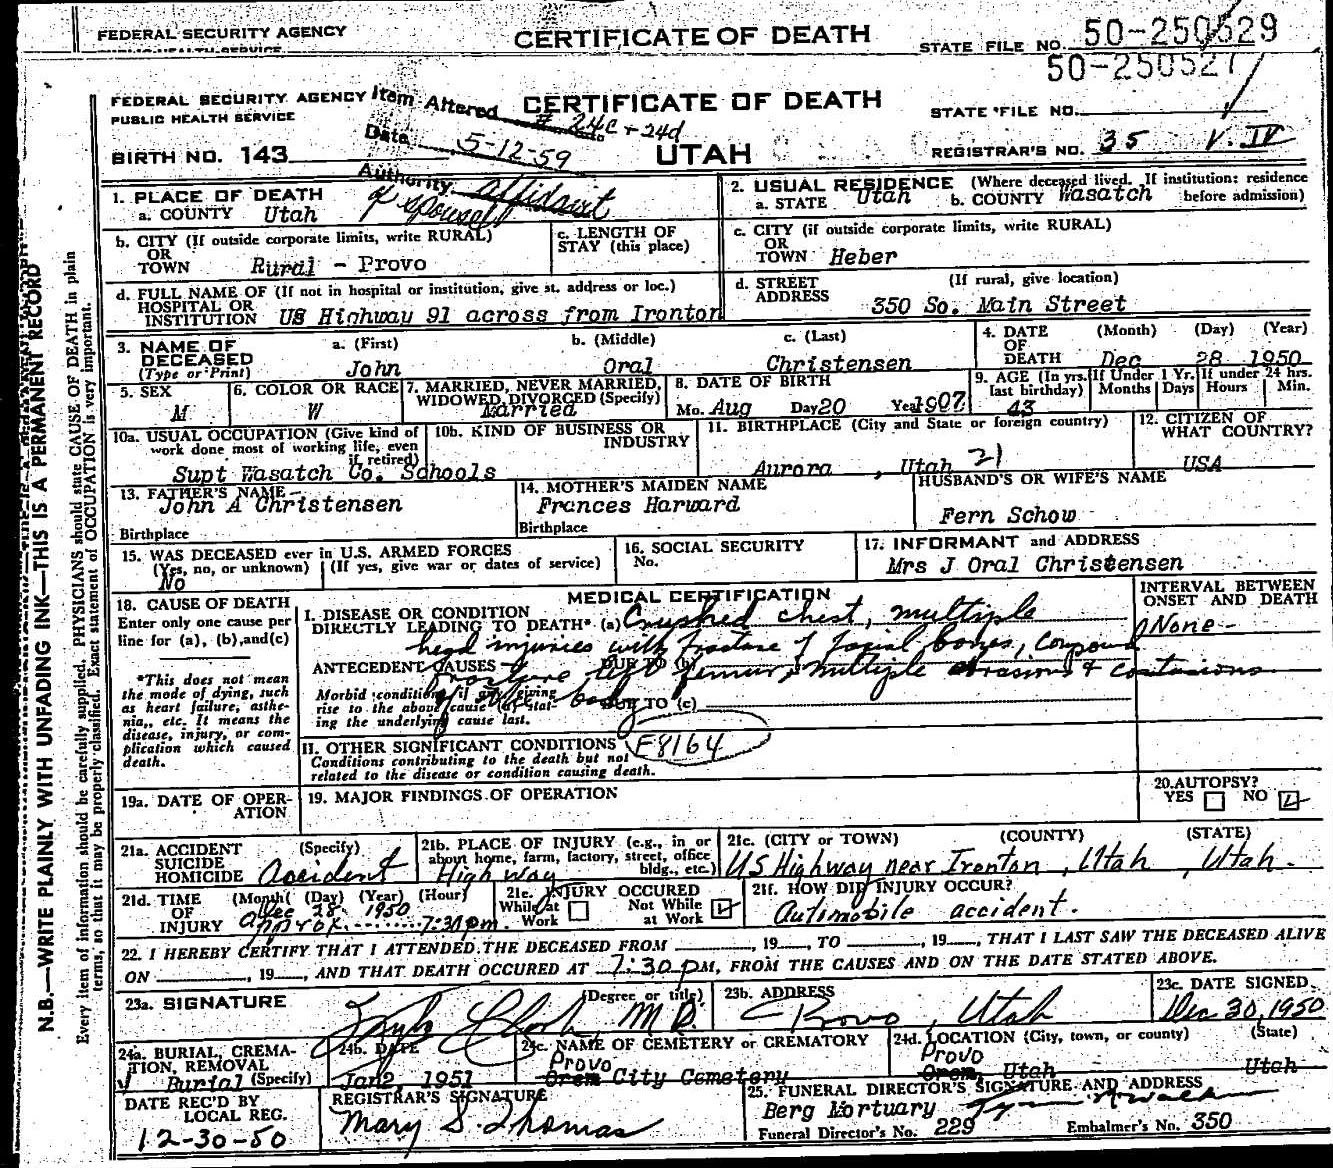 FEDERAL SECURITY AGENCY
PUBLIC HEALTH SERVICE
CERTIFICATE OF DEATH
STATE FILE NO. 50-250529
50-250527
FEDERAL SECURITY AGENCY
PUBLIC HEALTH SERVICE
Item Altered # 24c + 24d
CERTIFICATE OF DEATH
STATE FILE NO.
Date 5-12-59
BIRTH NO. 143
UTAH
REGISTRAR'S NO. 35 V. IV
Authority Affidavit
of spouse
1. PLACE OF DEATH
a. COUNTY Utah
2. USUAL RESIDENCE (Where deceased lived. If institution: residence before admission)
a. STATE Utah b. COUNTY Wasatch
b. CITY (If outside corporate limits, write RURAL)
OR
TOWN Rural - Provo
c. LENGTH OF
STAY (this place)
c. CITY (if outside corporate limits, write RURAL)
OR
TOWN Heber
d. FULL NAME OF (If not in hospital or institution, give st. address or loc.)
HOSPITAL OR
INSTITUTION US Highway 91 across from Ironton
d. STREET (If rural, give location)
ADDRESS 350 So. Main Street
3. NAME OF
DECEASED
(Type or Print)
a. (First) b. (Middle) c. (Last)
John Oral Christensen
4. DATE (Month) (Day) (Year)
OF
DEATH Dec 28 1950
5. SEX
M
6. COLOR OR RACE
W
7. MARRIED, NEVER MARRIED,
WIDOWED, DIVORCED (Specify)
Married
8. DATE OF BIRTH
Mo. Aug Day 20 Year 1907
9. AGE (In yrs. last birthday)
43
If Under 1 Yr.
Months Days
If under 24 hrs.
Hours Min.
10a. USUAL OCCUPATION (Give kind of
work done most of working life, even
if retired)
Supt Wasatch Co. Schools
10b. KIND OF BUSINESS OR
INDUSTRY
11. BIRTHPLACE (City and State or foreign country)
Aurora , Utah 21
12. CITIZEN OF
WHAT COUNTRY?
USA
13. FATHER'S NAME
John A Christensen
Birthplace
14. MOTHER'S MAIDEN NAME
Frances Harward
Birthplace
HUSBAND'S OR WIFE'S NAME
Fern Schow
15. WAS DECEASED ever in U.S. ARMED FORCES
(Yes, no, or unknown) (If yes, give war or dates of service)
No
16. SOCIAL SECURITY
No.
17. INFORMANT and ADDRESS
Mrs J Oral Christensen
18. CAUSE OF DEATH
Enter only one cause per
line for (a), (b), and (c)
*This does not mean
the mode of dying, such
as heart failure, asthe-
nia,, etc. It means the
disease, injury, or com-
plication which caused
death.
MEDICAL CERTIFICATION
INTERVAL BETWEEN
ONSET AND DEATH
None-
I. DISEASE OR CONDITION
DIRECTLY LEADING TO DEATH* (a) Crushed chest, multiple
head injuries with fracture of facial bones, compound
ANTECEDENT CAUSES DUE TO (b)
fracture left femur, multiple abrasions & contusions
Morbid conditions, if any, giving
rise to the above cause (a) stat-
ing the underlying cause last.
of the body
DUE TO (c)
II. OTHER SIGNIFICANT CONDITIONS
Conditions contributing to the death but not
related to the disease or condition causing death.
E8164
19a. DATE OF OPER-
ATION
19. MAJOR FINDINGS OF OPERATION
20. AUTOPSY?
YES NO
21a. ACCIDENT (Specify)
SUICIDE
HOMICIDE Accident
21b. PLACE OF INJURY (e.g., in or
about home, farm, factory, street, office
bldg., etc.)
Highway
21c. (CITY or TOWN) (COUNTY) (STATE)
US Highway near Ironton, Utah, Utah.
21d. TIME (Month) (Day) (Year) (Hour)
OF
INJURY Dec 28 1950
approx. 7:30 pm.
21e. INJURY OCCURED
While at Work Not While at Work
21f. HOW DID INJURY OCCUR?
Automobile accident.
22. I HEREBY CERTIFY THAT I ATTENDED THE DECEASED FROM , 19 , TO , 19 , THAT I LAST SAW THE DECEASED ALIVE
ON , 19 , AND THAT DEATH OCCURED AT 7:30 PM, FROM THE CAUSES AND ON THE DATE STATED ABOVE.
23a. SIGNATURE (Degree or title)
M.D.
23b. ADDRESS
Provo, Utah
23c. DATE SIGNED
Dec 30, 1950
24a. BURIAL, CREMA-
TION, REMOVAL
Burial (Specify)
24b. DATE
Jan 2, 1951
24c. NAME OF CEMETERY or CREMATORY
Provo
Orem City Cemetery
24d. LOCATION (City, town, or county) (State)
Provo
Orem, Utah Utah
DATE REC'D BY
LOCAL REG.
12-30-50
REGISTRAR'S SIGNATURE
Mary S. Thomas
25. FUNERAL DIRECTOR'S SIGNATURE AND ADDRESS
Berg Mortuary
Funeral Director's No. 229 Embalmer's No. 350
N.B.—WRITE PLAINLY WITH UNFADING INK—THIS IS A PERMANENT RECORD
Every item of information should be carefully supplied. PHYSICIANS should state CAUSE OF DEATH in plain
terms, so that it may be properly classified. Exact statement of OCCUPATION is very important.